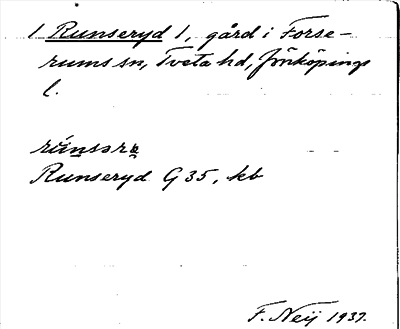 1 Runseryd 1, gård i Forse-
rums sn, Tveta hd, Jönköpings
l.
Runseryd G 35, kb
F. Neij 1937.